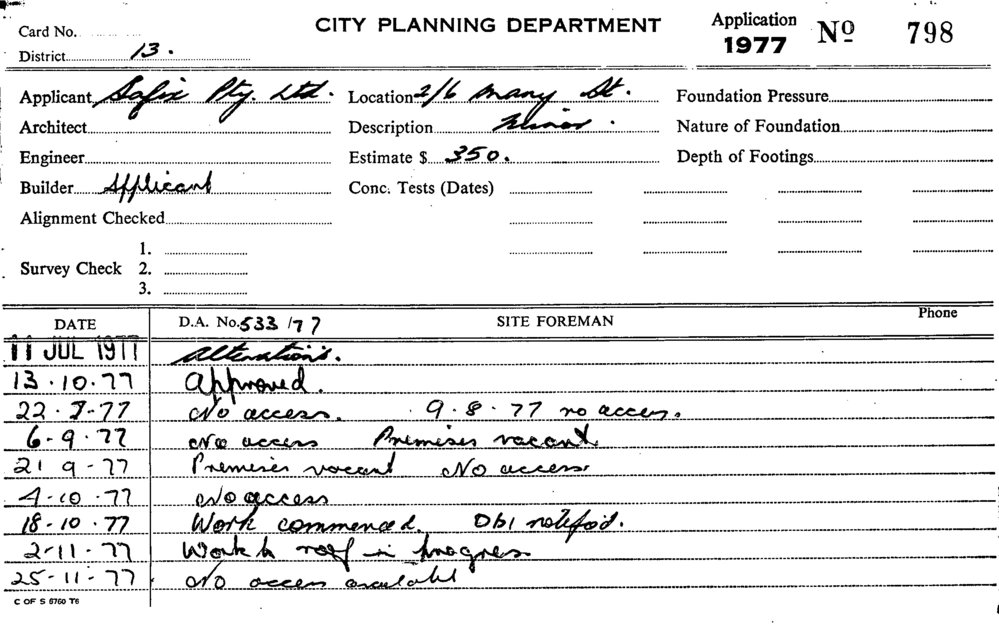 Card No.
CITY PLANNING DEPARTMENT
Application 1977 Nº 798
District 13.
Applicant Safix Pty. Ltd. Location 2/6 Many St. Foundation Pressure
Architect Description Minor. Nature of Foundation
Engineer Estimate $ 350. Depth of Footings
Builder Applicant Conc. Tests (Dates)
Alignment Checked
Survey Check 1. 2. 3.
DATE D.A. No. 533/77 SITE FOREMAN Phone
11 JUL 1977 Alterations.
13.10.77 Approved.
22.7-77 No access. 9.8.77 no access.
6-9.77 No access Premises vacant
21 9-77 Premises vacant No access
4-10.77 No access
18-10.77 Work commenced.
2-11-77 Work to roof in progress
25-11-77 No access available
C OF S 6760 T6